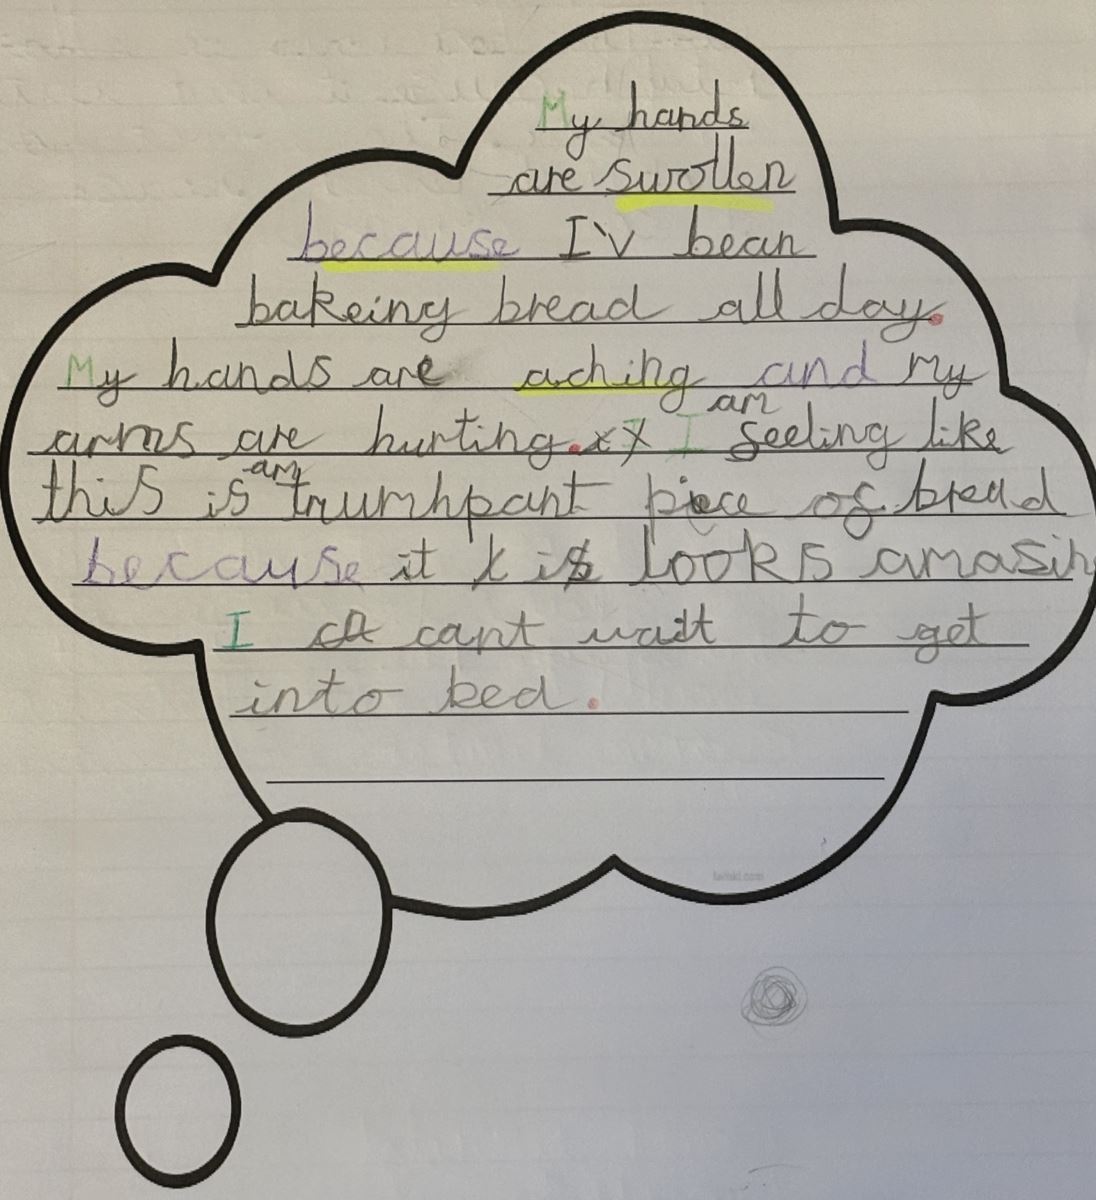 My hands
are swollen
because I'v bean
bakeing bread all day.
My hands are aching and my
am
arms are hurting. I seeling like
am
this is trumhpant piece of bread
because it is looks amasin
I cant wait to get
into bed.
twinkl.com